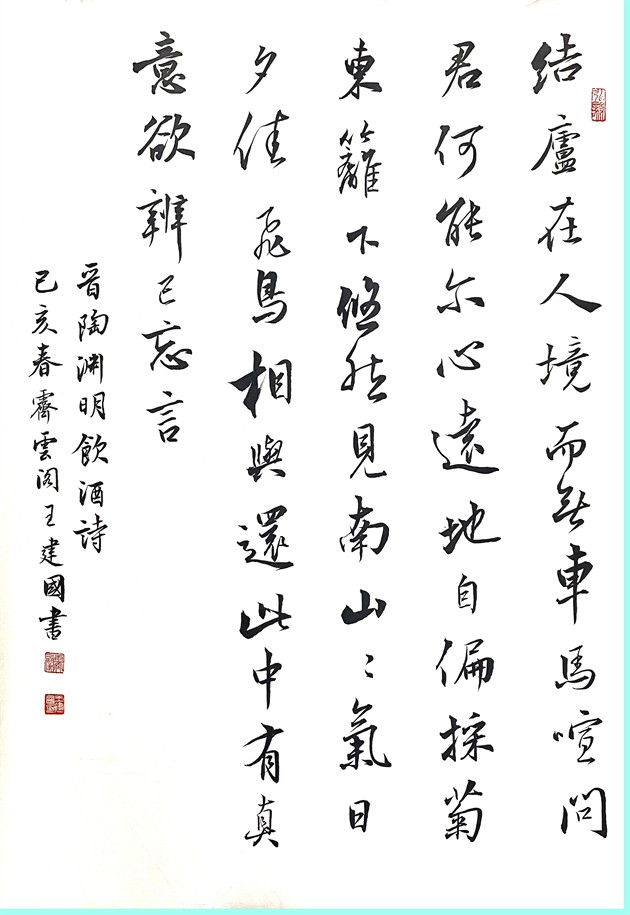 結廬在人境而無車馬喧問
君何能尔心遠地自偏採菊
東籬下悠然見南山山氣日
夕佳飛鳥相與還此中有真
意欲辨已忘言
晉陶淵明飲酒詩
己亥春霽雲閣王建國書